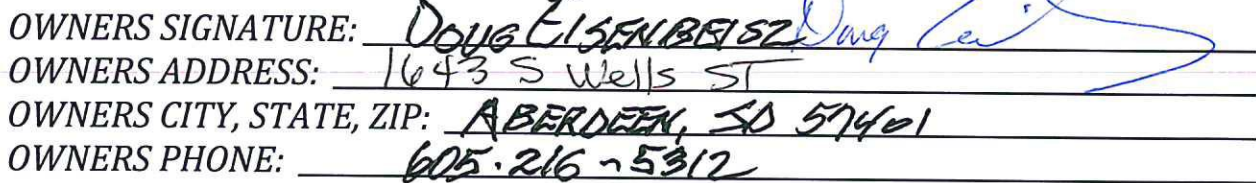 OWNERS SIGNATURE: DOUG EISENBEISZ Doug
OWNERS ADDRESS: 1643 S Wells ST
OWNERS CITY, STATE, ZIP: ABERDEEN, SD 57401
OWNERS PHONE: 605.216-5312